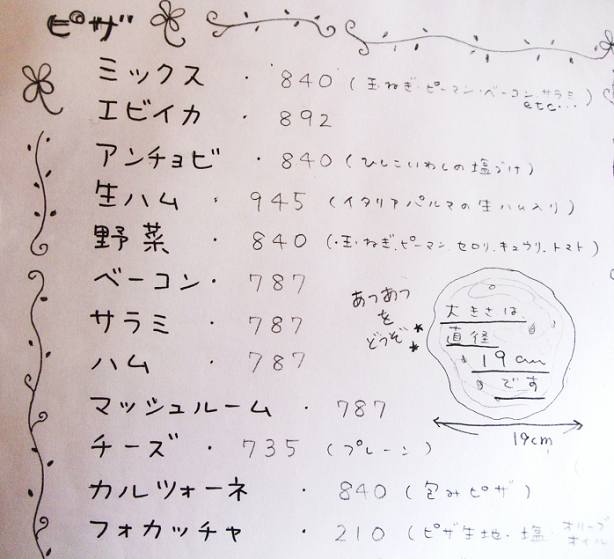 ピザ
ミックス ・ 840 (玉ねぎ・ピーマン・ベーコン、サラミ etc…)
エビイカ ・ 892
アンチョビ ・ 840 (ひしこいわしの塩づけ)
生ハム ・ 945 (イタリアパルマの生ハム入り)
野菜 ・ 840 (・玉ねぎ、ピーマン、セロリ、キュウリ、トマト)
ベーコン ・ 787
サラミ ・ 787
ハム ・ 787
マッシュルーム ・ 787
チーズ ・ 735 (プレーン)
カルツォーネ ・ 840 (包みピザ)
フォカッチャ ・ 210 (ピザ生地・塩・オリーブオイル
あつあつ
を
どうぞ
大きさは、
直径
19cm
です
19cm